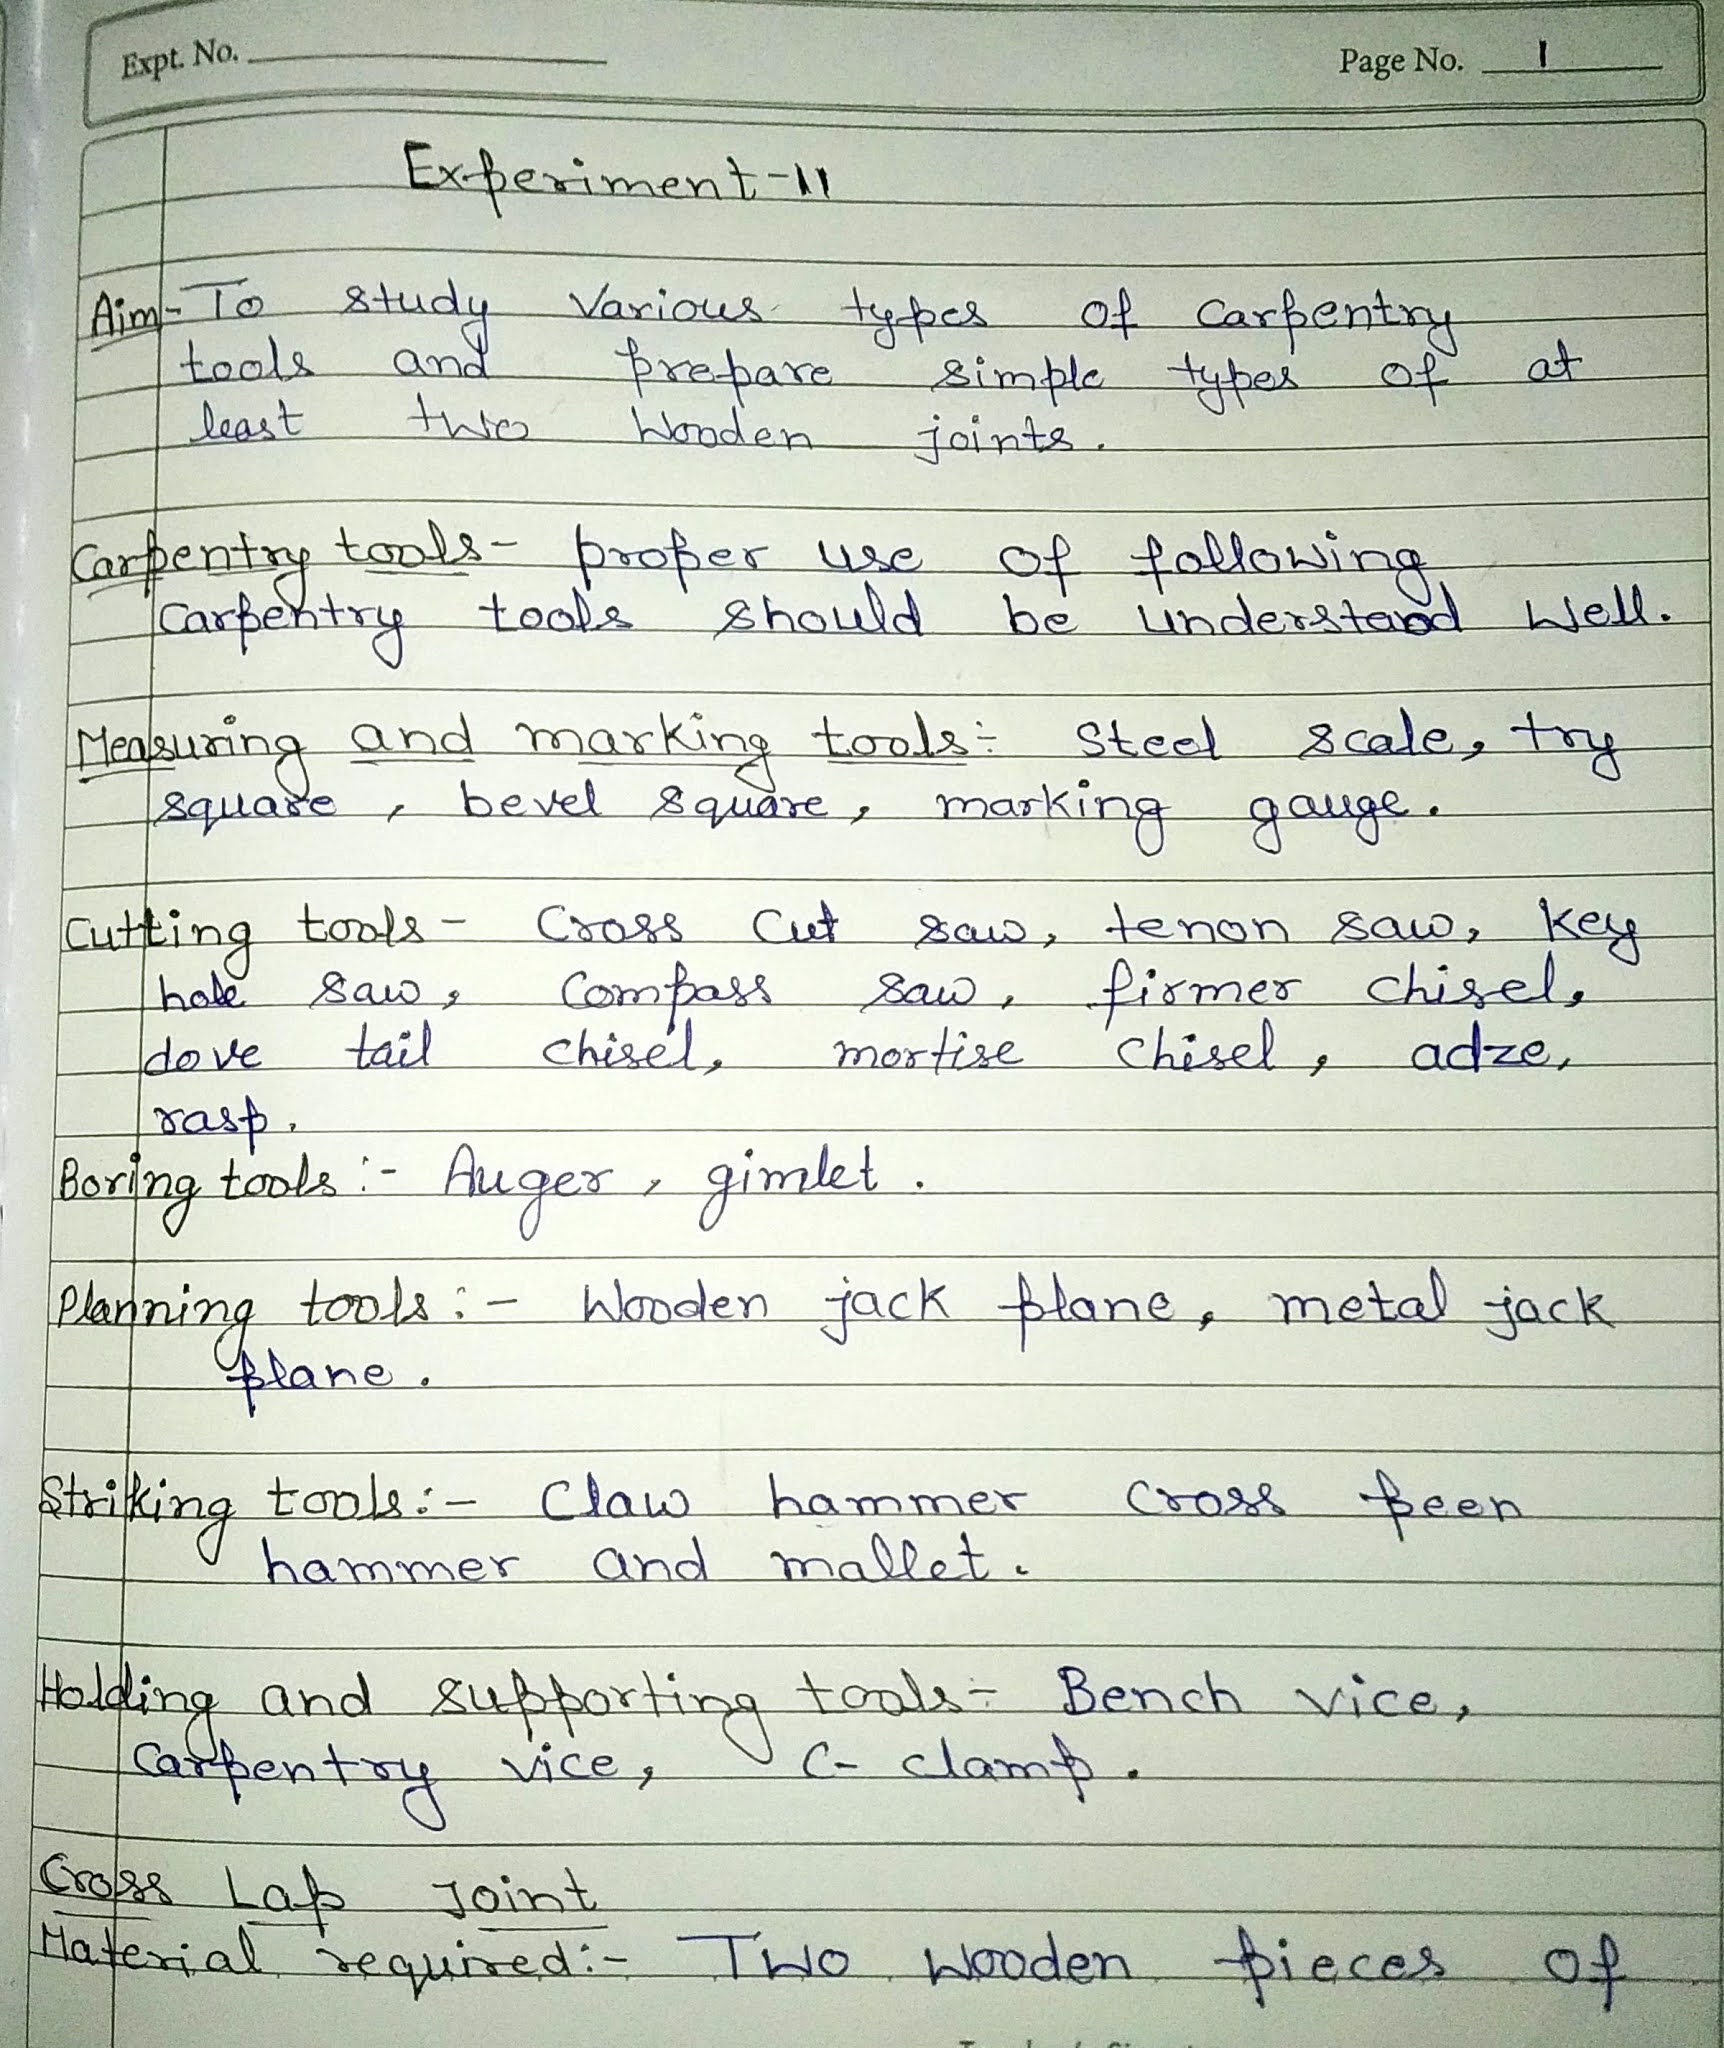 Expt. No.
Page No. 1
Experiment-11
Aim- To study various types of carpentry
tools and prepare simple types of at
least two wooden joints.
Carpentry tools- proper use of following
carpentry tools should be understood well.
Measuring and marking tools:- Steel scale, try
square, bevel square, marking gauge.
Cutting tools - Cross cut saw, tenon saw, key
hole saw, compass saw, firmer chisel,
dove tail chisel, mortise chisel, adze,
rasp.
Boring tools :- Auger, gimlet.
Planning tools :- Wooden jack plane, metal jack
plane.
Striking tools :- Claw hammer cross peen
hammer and mallet.
Holding and supporting tools:- Bench vice,
carpentry vice, C- clamp.
Cross Lap Joint
Material required :- Two wooden pieces of